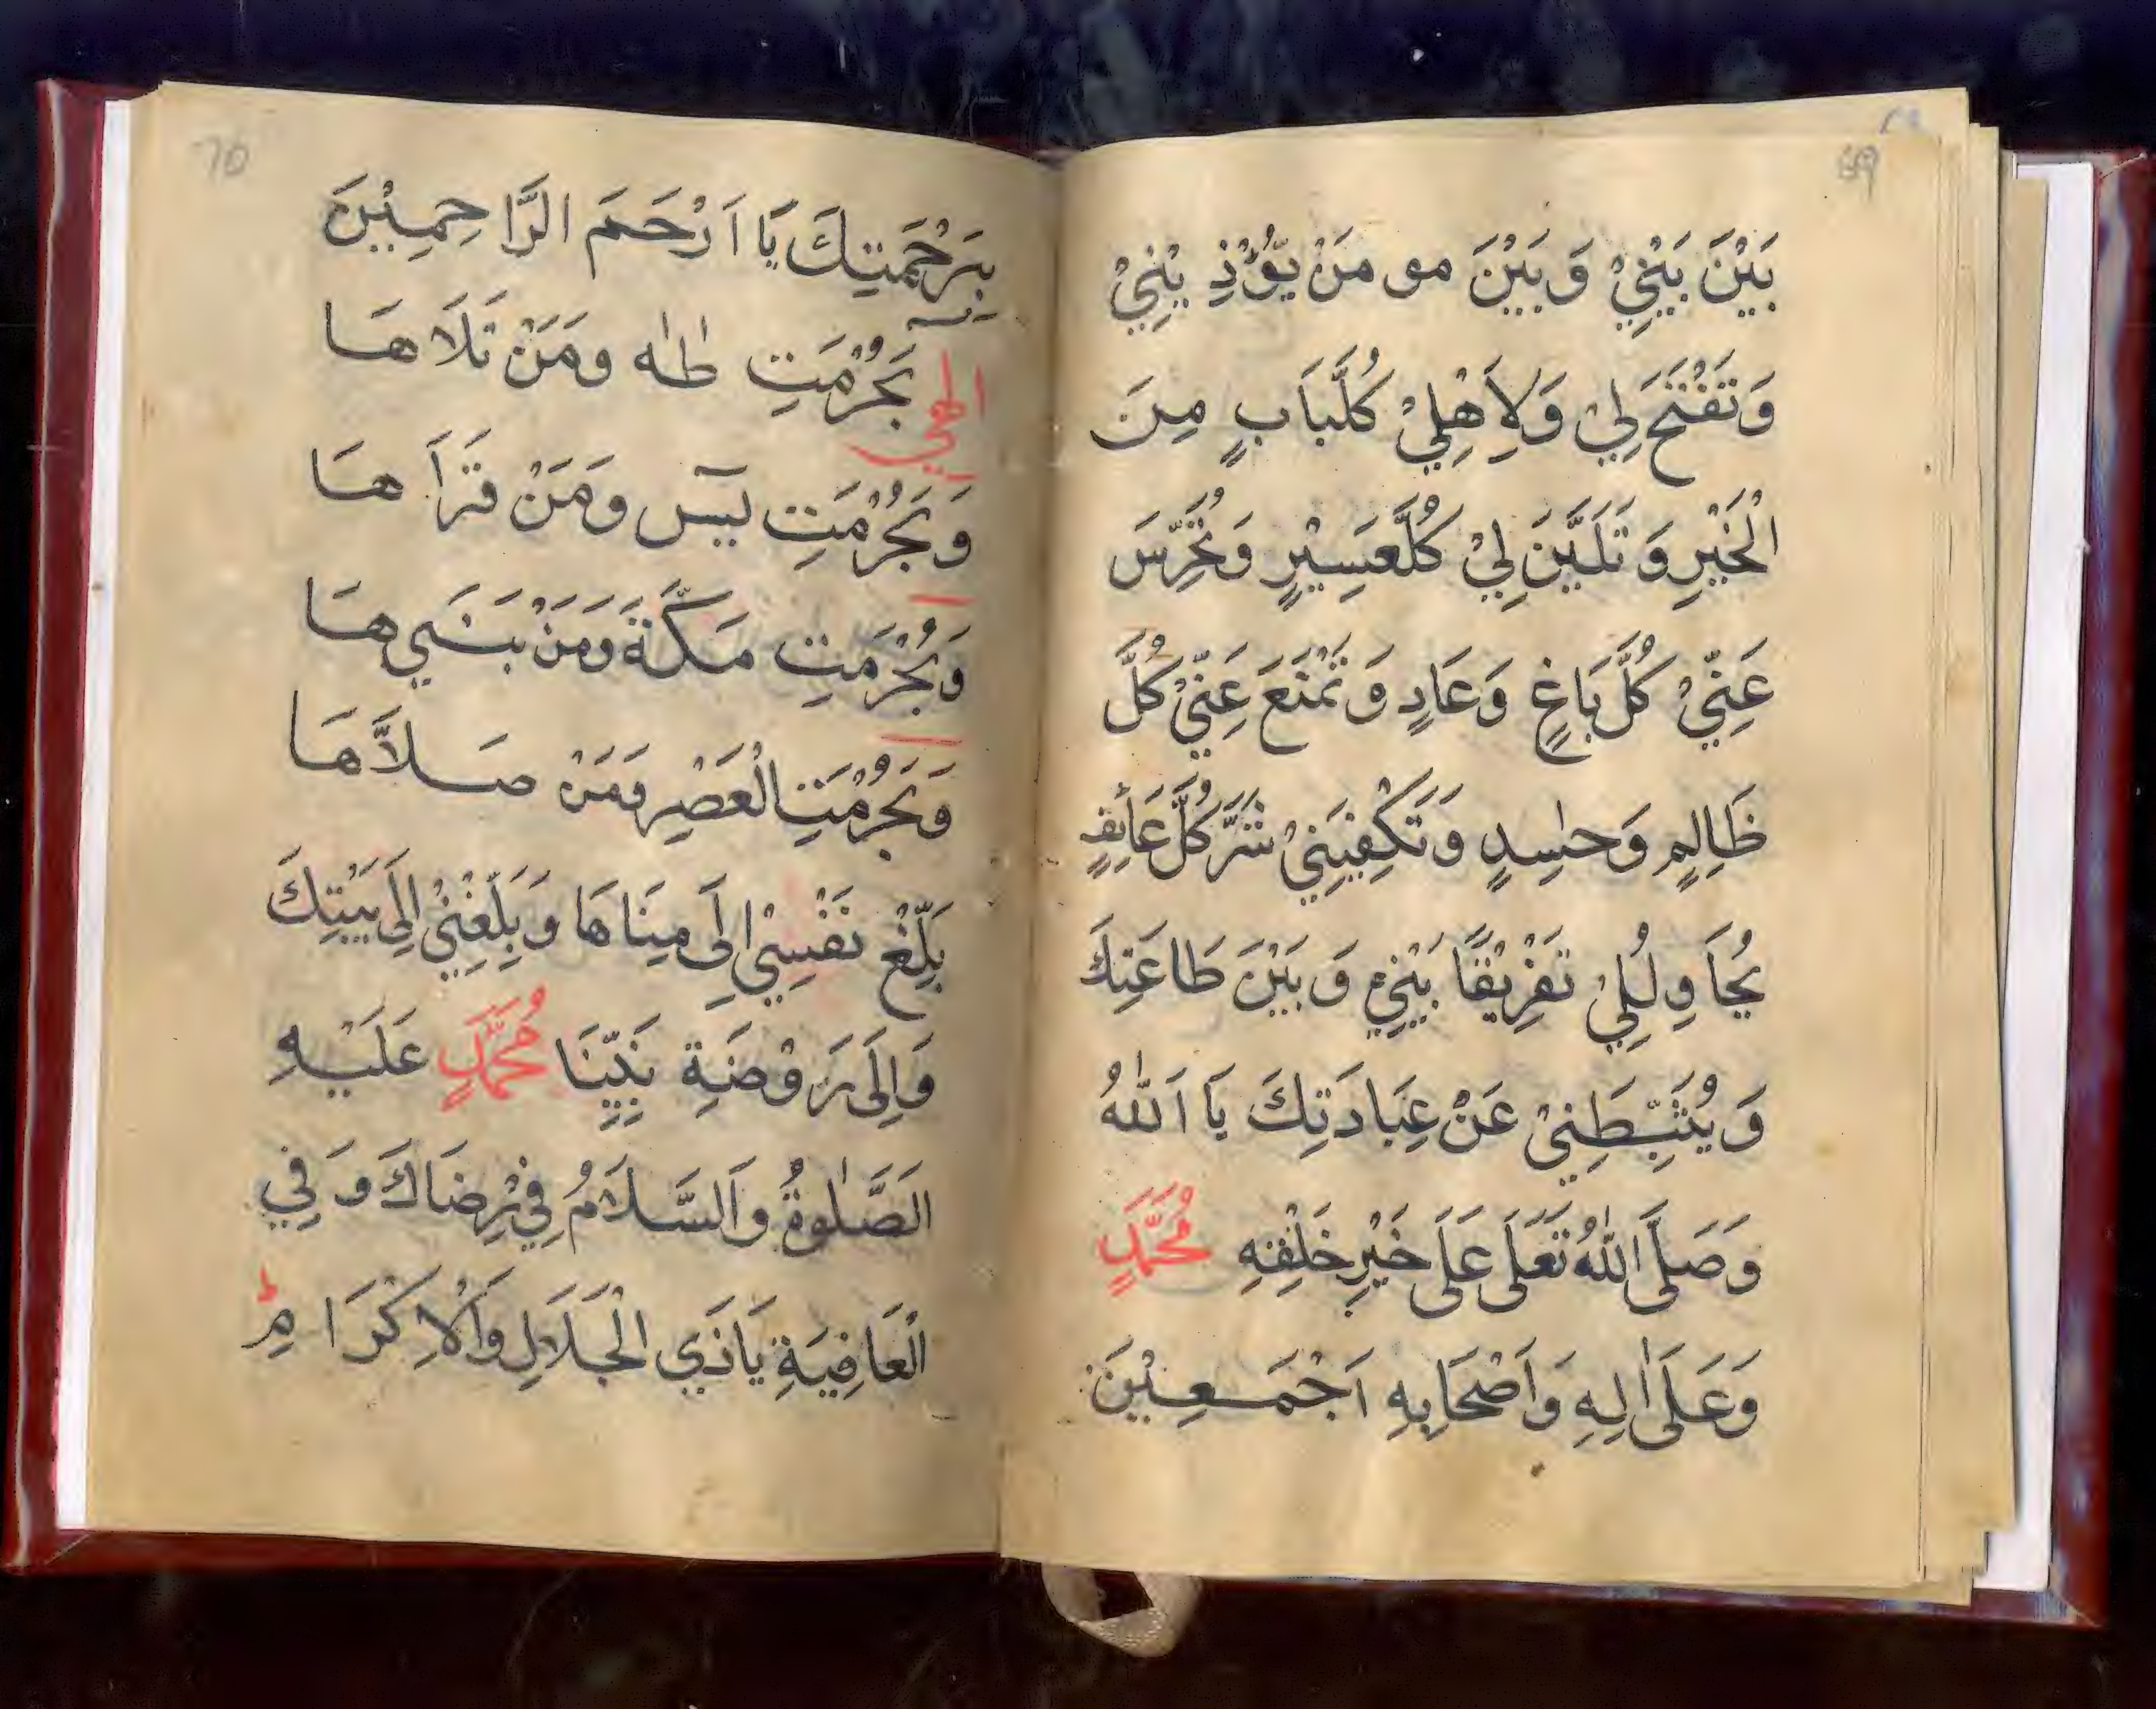 69
بَيْنَ بَيْنِيْ وَبَيْنَ مو مَنْ يُّوْذِ يْنِيْ
وَتَفْتَحَ لِيْ وَلِاَهْلِيْ كُلَّبَابٍ مِنَ
الْخَيْرِ وَتَلَيَّنَ لِيْ كُلَّعَسِيْرٍ وَتُخَرِّسَ
عَنِّيْ كُلَّ بَاغٍ وَعَادٍ وَتَمْنَعَ عَنِّيْ كُلَّ
ظَالِمٍ وَحٰسِدٍ وَتَكْفِيَنِيْ شَرَّ كُلَّ عَائِفٍ
يُحَاوِلُلِيْ تَفْرِيْقًا بَيْنِيْ وَبَيْنَ طَاعَتِكَ
وَيُثَبِّطَنِيْ عَنْ عِبَادَتِكَ يَا اَللّٰهُ
وَصَلَّى اللّٰهُ تَعَلَى عَلَى خَيْرِ خَلْقِهِ مُحَمَّدٍ
وَعَلَى اٰلِهِ وَاَصْحَابِهِ اَجْمَعِيْنَ
70
بِرَحْمَتِكَ يَا اَرْحَمَ الرَّاحِمِيْنَ
الهي بَحُرْمَتِ طٰهٰ وَمَنْ تَلَاهَا
وَبَحُرْمَتِ يٓس وَمَنْ قَرَاَهَا
وَبَحُرْمَتِ مَكَّةَ وَمَنْ بَنَيهَا
وَبَحُرْمَتِ الْعَصْرِ وَمَنْ صَلاَّهَا
بَلِّغْ نَفْسِيْ اِلَى مِنَاهَا وَبَلِّغْنِيْ اِلَى بَيْتِكَ
وَاِلَى رَوْضَةِ نَبِيِّنَا مُحَمَّدٍ عَلَيْهِ
الَصَّلٰوةُ وَاَلسَّلَامُ فِيْ رِضَاكَ وَفِي
الْعَافِيَةِ يَاذَي الْجَلَالِ وَاْلاِكْرَامِ